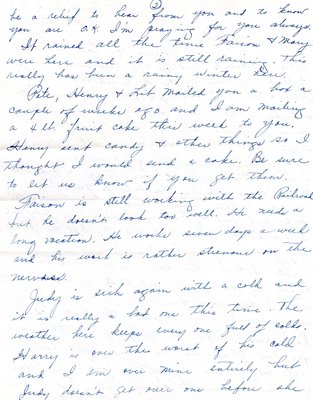 ②
be a relief to hear from you and to know
you are O.K. I'm praying for you always.
It rained all the time Faison & Mary
were here and it is still raining. This
really has been a rainy winter Dev.
Pete, Henry & Lib mailed you a box a
couple of weeks ago. and I am mailing
a 4 lb. fruit cake this week to you.
Henry sent candy & other things so I
thought I would send a cake. Be sure
to let us know if you get them.
Faison is still working with the Railroad
but he doesn't look too well. He needs a
long vacation. He works seven days a week
and his work is rather strenous on the
nervess.
Judy is sick again with a cold and
it is really a bad one this time. The
weather here keeps every one full of colds.
Harry is over the worst of his cold
and I am over mine entirely but
Judy doesn't get over one before she